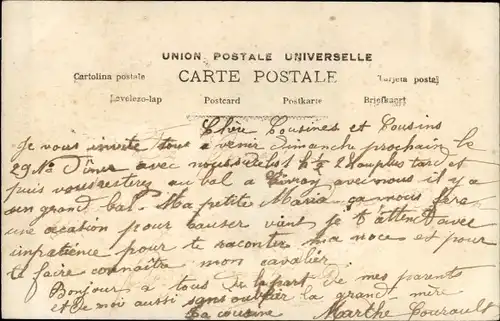 UNION POSTALE UNIVERSELLE
Cartolina postale CARTE POSTALE Tarjeta postal
Levelezo-lap Postcard Postkarte Briefkaart
Chère Cousines et Cousins
Je vous invite tous a venir dimanche prochain le
29 Dîner avec nous 2 plus tard et
puis vous resterez au bal à avec nous il y a
un grand bal. Ma petite Maria ça nous fera
une ocasion pour causer vient je t'attent avec
inpatience pour te raconter ma noce et pour
te faire connaître mon cavalier.
Bonjour a tous de la part de mes parents
et de moi aussi sans oublier la grand-mère
Ta cousine Marthe Courault